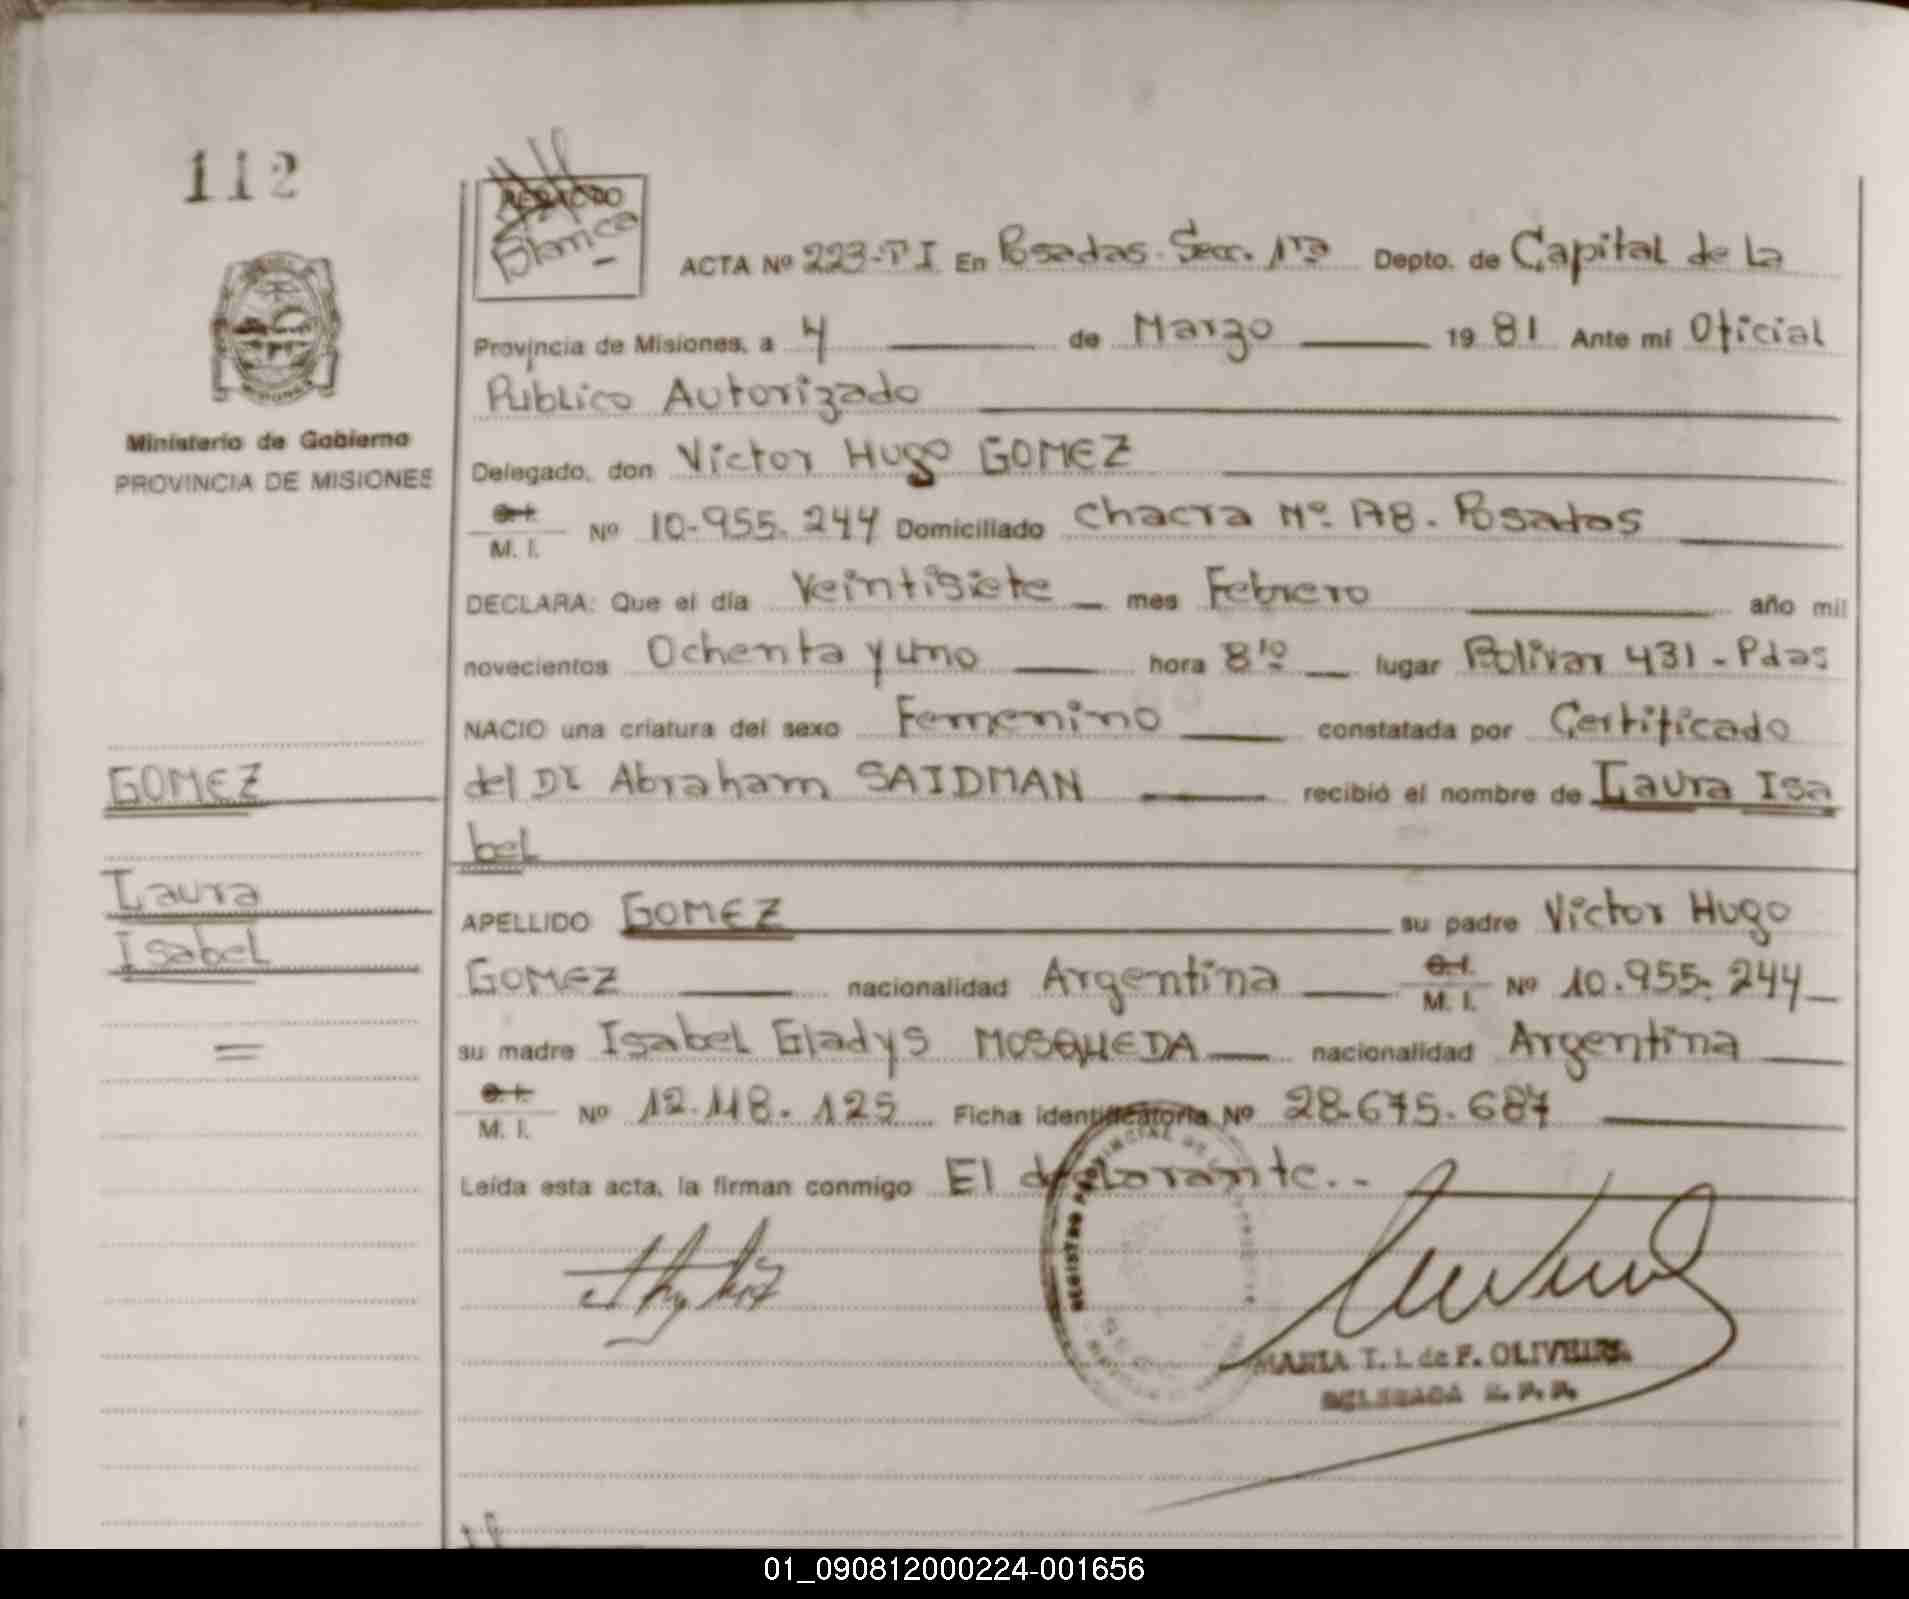 112
Blanca
ACTA Nº 223-TI En Posadas. Secc. 1ra Depto. de Capital de la
Provincia de Misiones, a 4 de Marzo 1981 Ante mí Oficial
Publico Autorizado
Ministerio de Gobierno
PROVINCIA DE MISIONES
Delegado, don Victor Hugo GOMEZ
C.I. M. I. Nº 10-955.244 Domiciliado Chacra Nº. Posadas
DECLARA: Que el día Veintisiete mes Febrero año mil
novecientos Ochenta y uno hora 8'10 lugar Bolivar 431 - Pdas
NACIO una criatura del sexo Femenino constatada por Certificado
GOMEZ
del Dr Abraham SAIDMAN recibió el nombre de Laura Isa
bel
Laura
Isabel
APELLIDO GOMEZ su padre Victor Hugo
GOMEZ nacionalidad Argentina C.I. M. I. Nº 10.955.244
su madre Isabel Gladys MOSQUEDA nacionalidad Argentina
C.I. M. I. Nº 12.118.125 Ficha identificatoria Nº 28.675.687
Leída esta acta, la firman conmigo El declarante.-
REGISTRO PROVINCIAL DE LAS PERSONAS
MARIA T. I. de F. OLIVEIRA
DELEGADA R. P. P.
01_090812000224-001656